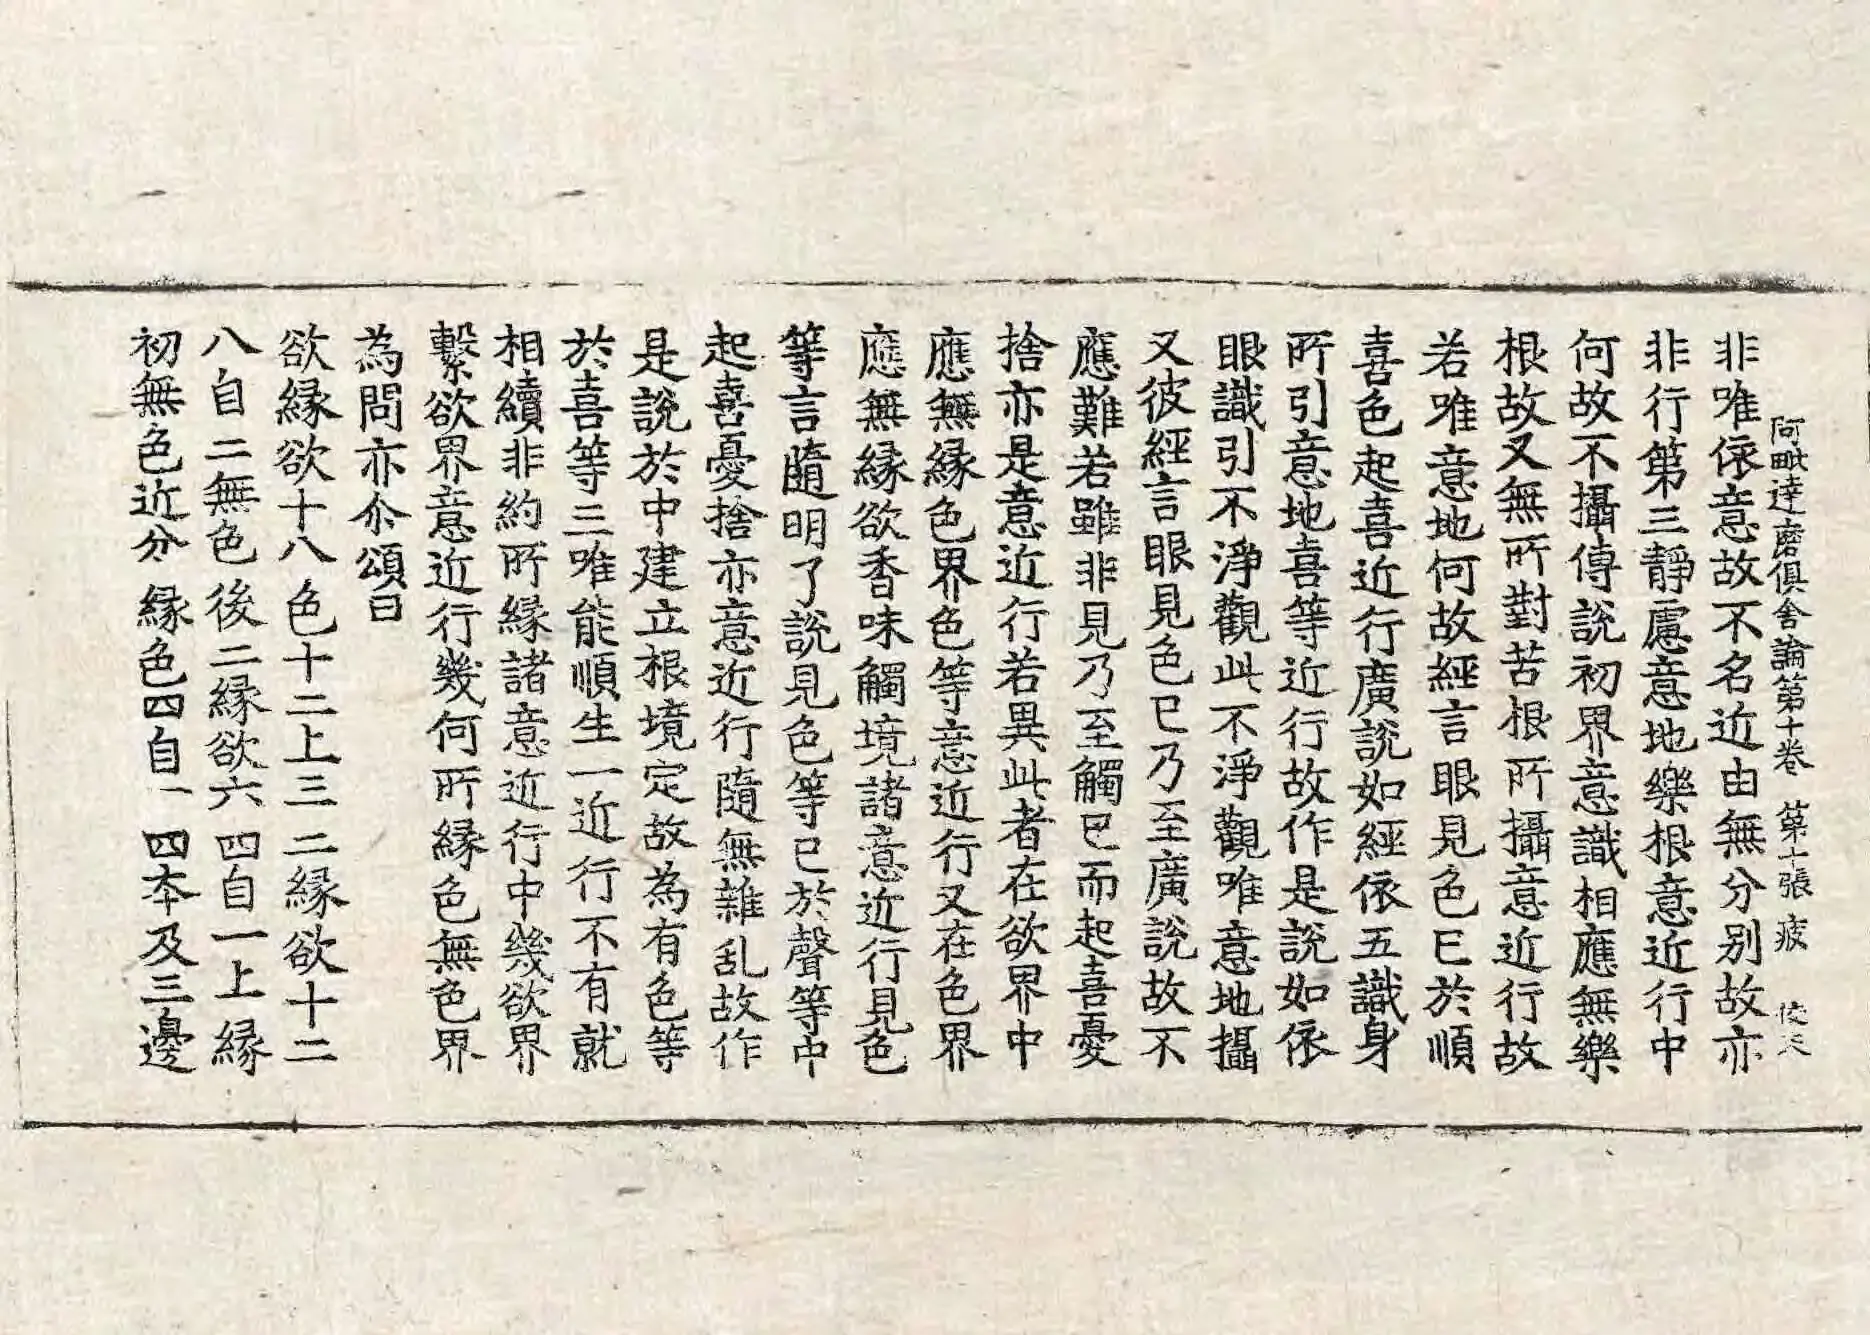 阿毗達磨俱舍論第十卷 第十張 疲
非唯依意故不名近由無分别故亦
非行第三靜慮意地樂根意近行中
何故不攝傳說初界意識相應無樂
根故又無所對苦根所攝意近行故
若唯意地何故經言眼見色已於順
喜色起喜近行廣說如經依五識身
所引意地喜等近行故作是說如依
眼識引不淨觀此不淨觀唯意地攝
又彼經言眼見色已乃至廣說故不
應難若雖非見乃至觸已而起喜憂
捨亦是意近行若異此者在欲界中
應無緣色界色等意近行又在色界
應無緣欲香味觸境諸意近行見色
等言隨明了說見色等已於聲等中
起喜憂捨亦意近行隨無雜乱故作
是說於中建立根境定故為有色等
於喜等三唯能順生一近行不有就
相續非約所緣諸意近行中幾欲界
繫欲界意近行幾何所緣色無色界
為問亦尒頌曰
欲緣欲十八 色十二上三 二緣欲十二
八自二無色 後二緣欲六 四自一上緣
初無色近分 緣色四自一 四本及三邊